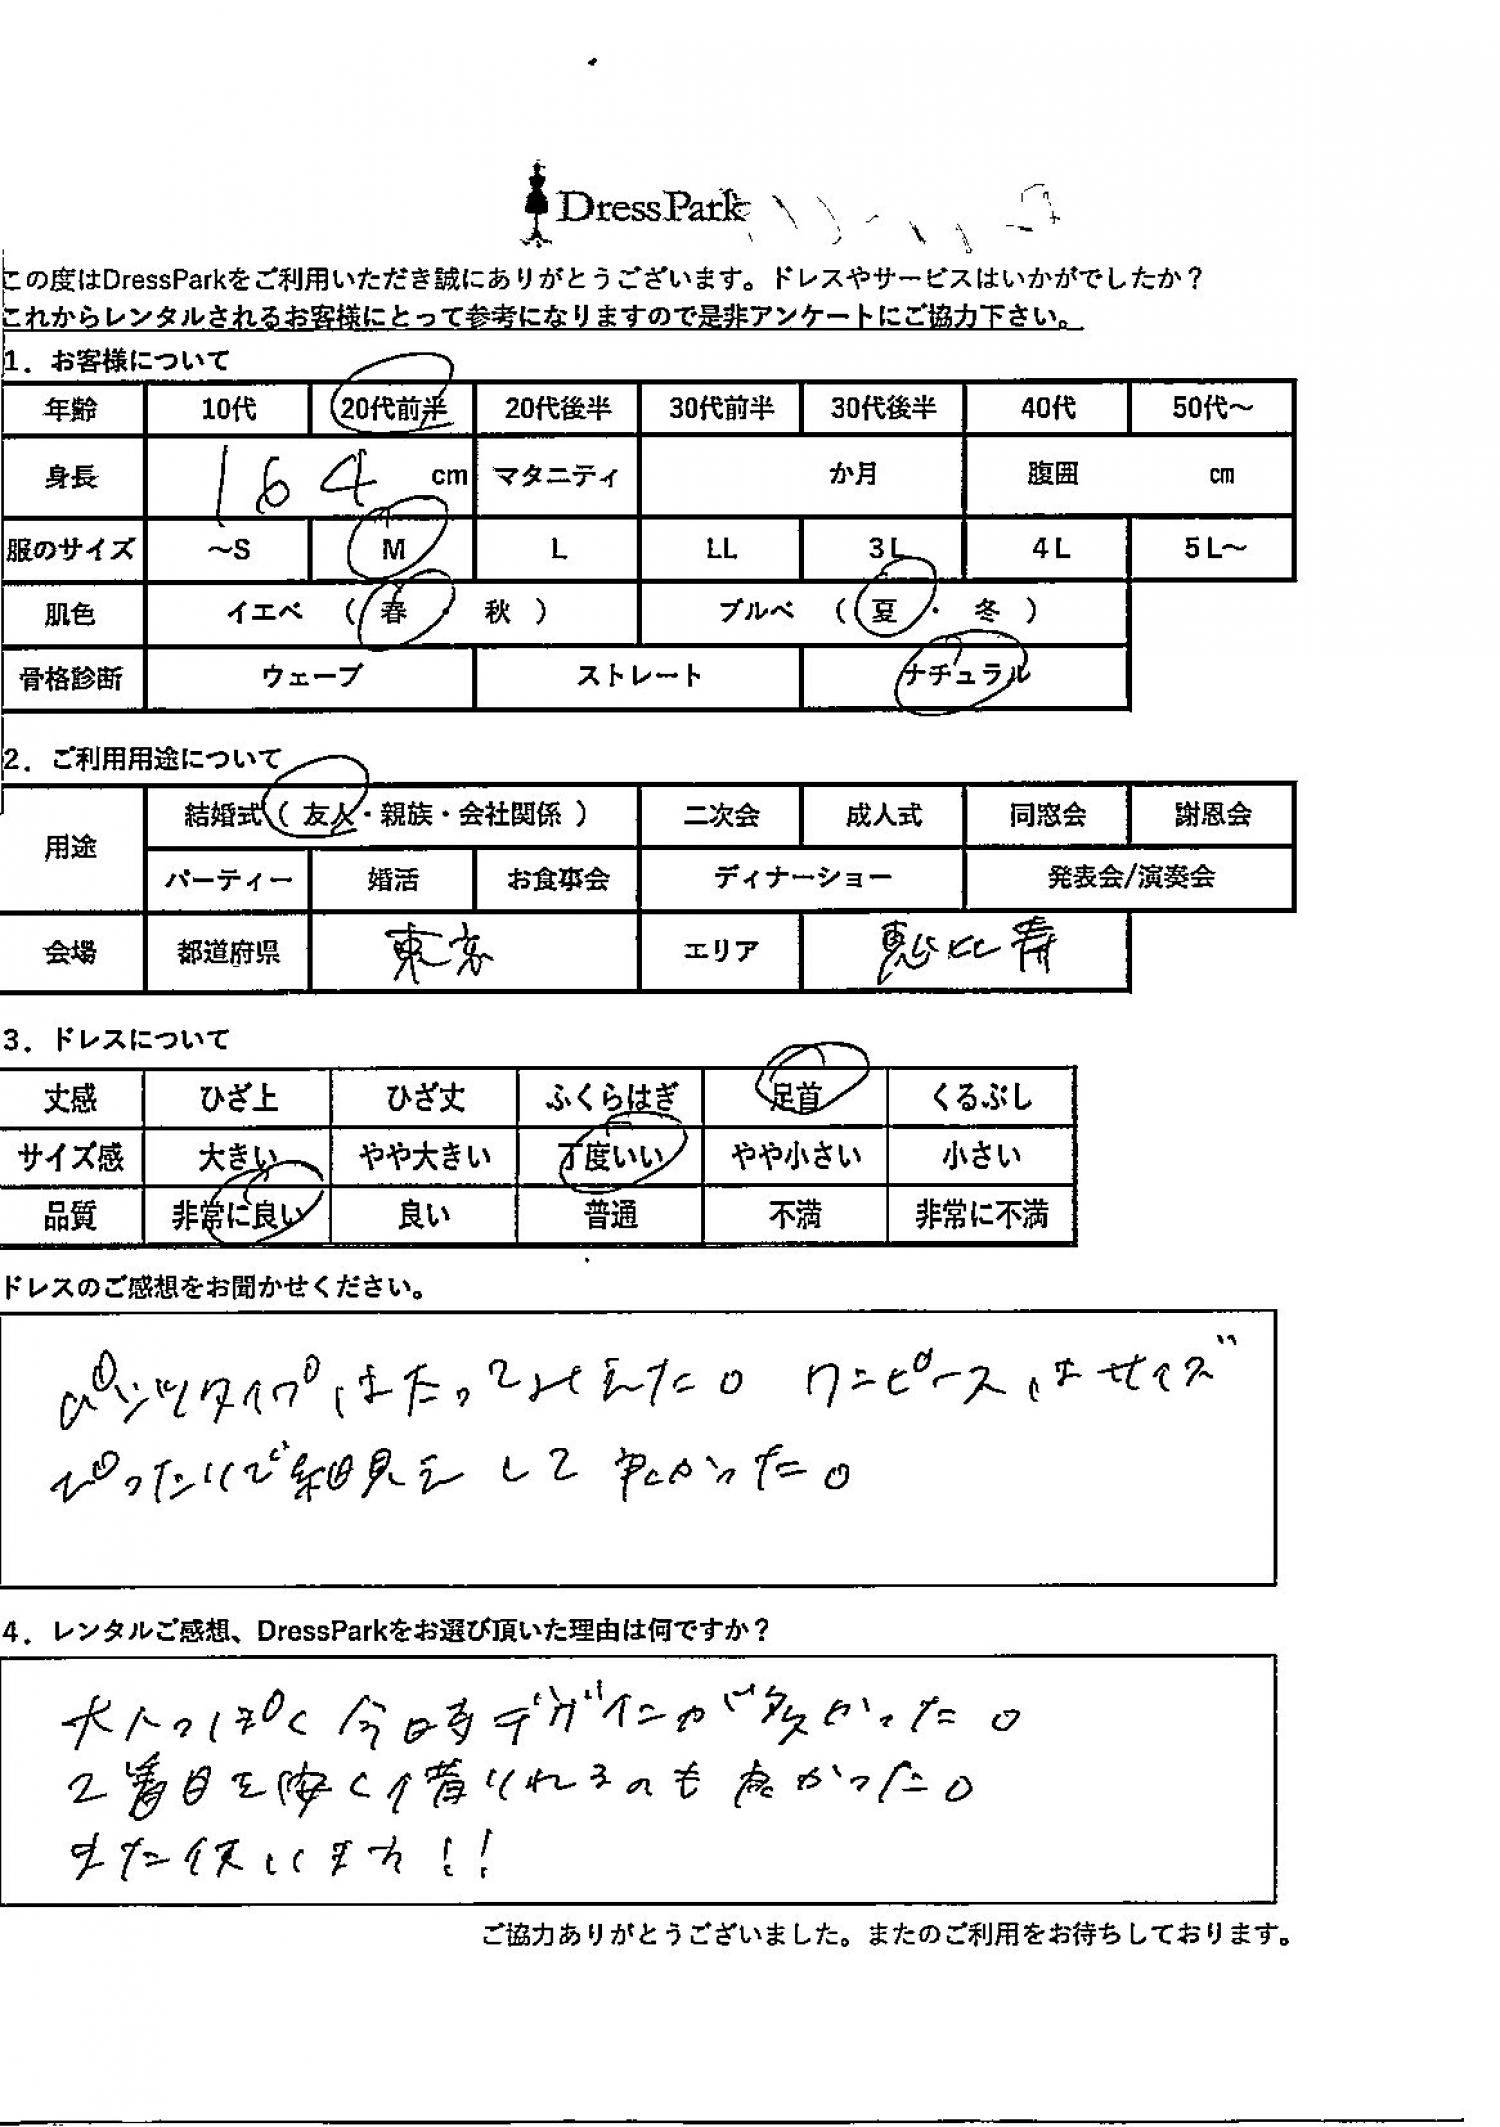 DressPark
この度はDressParkをご利用いただき誠にありがとうございます。ドレスやサービスはいかがでしたか？
これからレンタルされるお客様にとって参考になりますので是非アンケートにご協力下さい。
1．お客様について
年齢 10代 20代前半 20代後半 30代前半 30代後半 40代 50代～
身長 164 cm マタニティ か月 腹囲 cm
服のサイズ ～S M L LL 3L 4L 5L～
肌色 イエベ （ 春 ・ 秋 ） ブルベ （ 夏 ・ 冬 ）
骨格診断 ウェーブ ストレート ナチュラル
2．ご利用用途について
用途 結婚式（ 友人・親族・会社関係 ） 二次会 成人式 同窓会 謝恩会
パーティー 婚活 お食事会 ディナーショー 発表会/演奏会
会場 都道府県 東京 エリア 恵比寿
3．ドレスについて
丈感 ひざ上 ひざ丈 ふくらはぎ 足首 くるぶし
サイズ感 大きい やや大きい 丁度いい やや小さい 小さい
品質 非常に良い 良い 普通 不満 非常に不満
ドレスのご感想をお聞かせください。
パンツタイプは 。ワンピースはサイズ
ぴったりで細見え して 。
4．レンタルご感想、DressParkをお選び頂いた理由は何ですか？
大人っぽく今時デザインが多かった。
2着目を安く借りれるのも良かった。
また使います！！
ご協力ありがとうございました。またのご利用をお待ちしております。